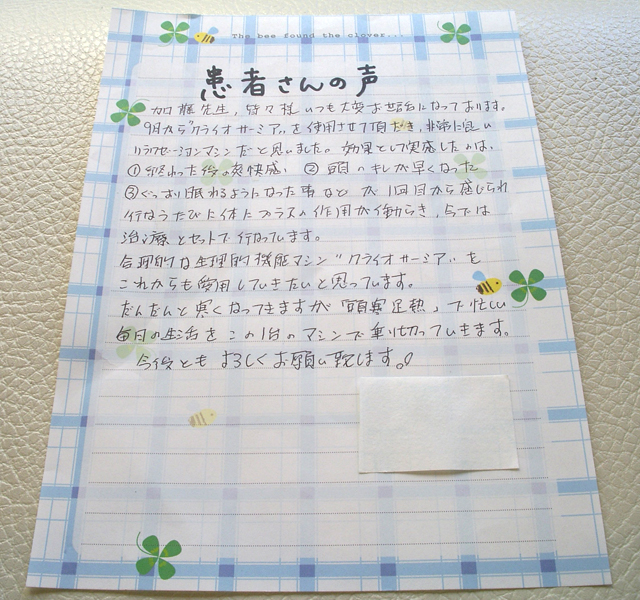 The bee found the clover...
患者さんの声
加椎先生，皆々様いつも大変お世話になっております。
9月から"クライオサーミア"を使用させて頂だき，非常に良い
リラクゼーションマシンだーと思いました。効果として実感したのは，
①終わった後の爽快感，②頭のキレが早くなった
③ぐっすり眠れるようになった事など が1回目から感じられ
行なうたびに体にプラスの作用が働らき，今では
治療とセットで行なっています。
合理的な生理的機能マシン"クライオサーミア"を
これからも愛用していきたいと思っています。
だんだんと寒くなってきますが「頭寒足熱」で忙しい
毎日の生活をこの1台のマシンで乗り切っていきます。
今後ともよろしくお願い致します。